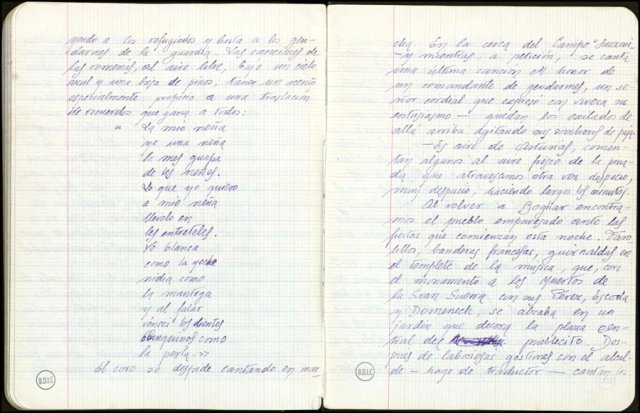 yendo a los refugiados y hasta a los gen-
darmes de la guardia. Las canciones de
las romerías, al aire libre, bajo un cielo
azul y una baja de pinos, tienen un acento
especialmente propicio a una traslación
de recuerdos que gana a todos:
" La mio neña
ye una neña
la mes guapa
de les neñes.
Lo que yo quiero
a mio neña
llevolo en
les entreteles.
Ye blanca
como la yeche
nidia como
la mantega
y al falar
vénse i los dientes
blanquiños como
la perla. »
El coro se despide cantando en mar-
B.D.I.C
cha. En la cerca del Campo "Suzoni"
- y mientras, a petición, se canta
una última canción en honor de
un comandante de gendarmes, un se-
ñor cordial que expresó con viveza su
entusiasmo - quedan los exilados de
allá arriba agitando sus sombreros de paja.
- Es aire de Asturias, comen-
tan algunos al aire fresco de la
que atravesamos otra vez despacio,
muy despacio, haciendo largos los minutos.
Al volver a Boghar encontra-
mos el pueblo empavesado ante las
fiestas que comienzan esta noche. Faro
lillos, banderas francesas, guirnaldas en
el templete de la música, que, con
el monumento a los Muertos de
la Gran Guerra con sus Pérez, Escorda
y Domenech, se alzaba en un
jardín que decora la plaza cen-
tral del pueblecito. Des-
pués de laboriosas gestiones con el alcal-
de - hago de traductor - cantan
B.D.I.C